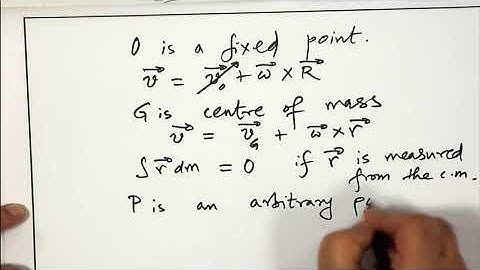 O is a fixed point.
v⃗ = v⃗₀ + ω⃗ × R⃗
G is centre of mass
v⃗ = v⃗_G + ω⃗ × r⃗
∫ r⃗ dm = 0 if r⃗ is measured
from the c.m.
P is an arbitrary